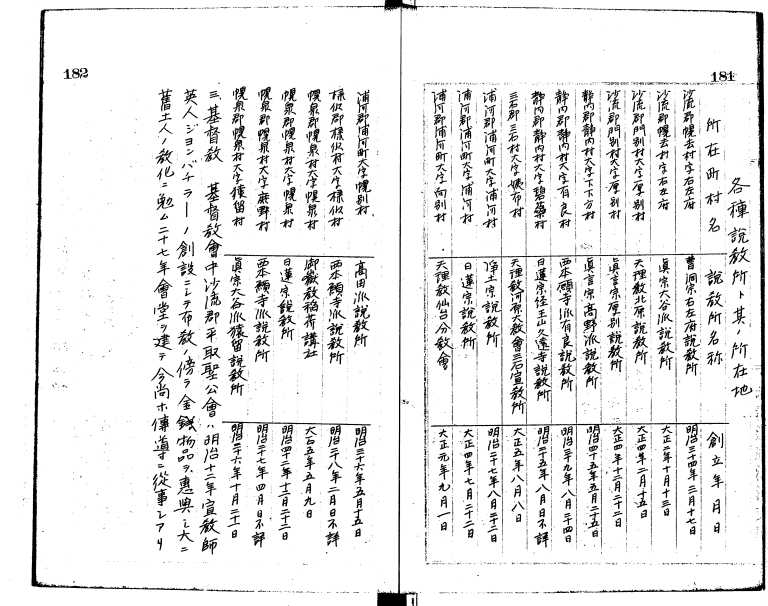 181
各種說教所ト其ノ所在地
所在町村名 說教所名称 創立年月日
沙流郡幌去村字右左府 曹洞宗右左府說教所 明治三十四年三月十七日
沙流郡幌去村字右左府 眞宗大谷派說教所 大正二年十月十三日
沙流郡門別村大字厚別村 天理教北原說教所 大正四年二月十五日
沙流郡門別村大字厚別村 眞言宗厚別說教所 大正四年十二月二十二日
静内郡静内村大字下下方村 眞言宗高野派說教所 明治四十五年五月二十五日
静内郡静内村大字有良村 西本願寺派有良說教所 明治二十九年八月二十四日
静内郡静内村大字碧蘂村 日蓮宗経王山久遠寺說教所 明治二十五年八月日不詳
三石郡三石村大字姨布村 天理教河原大教會三石宣教所 大正五年八月八日
浦河郡浦河町大字浦河村 浄土宗說教所 明治二十七年八月二十二日
浦河郡浦河町大字浦河村 日蓮宗說教所 大正四年七月二十二日
浦河郡浦河町大字向別村 天理教仙台分教會 大正元年九月一日
182
浦河郡浦河町大字幌別村 高田派說教所 明治三十六年五月十五日
様似郡様似村大字様似村 西本願寺派說教所 明治二十八年二月日不詳
幌泉郡幌泉村大字幌泉村 御嶽教稲荷講社 大正五年五月九日
幌泉郡幌泉村大字幌泉村 日蓮宗說教所 明治四十二年十二月二十二日
幌泉郡幌泉村大字庶野村 西本願寺派說教所 明治二十七年四月日不詳
幌泉郡幌泉村大字猿留村 眞宗大谷派猿留說教所 明治三十六年十月二十一日
三、基督教 基督教會中沙流郡平取聖公會ハ明治十二年宣教師
英人ジヨンバチラーノ創設ニシテ布教ノ傍ラ金錢物品ヲ惠與シ大ニ
舊土人ノ教化ニ勉ム二十七年會堂ヲ建テ今尚ホ傳導ニ從事シアリ